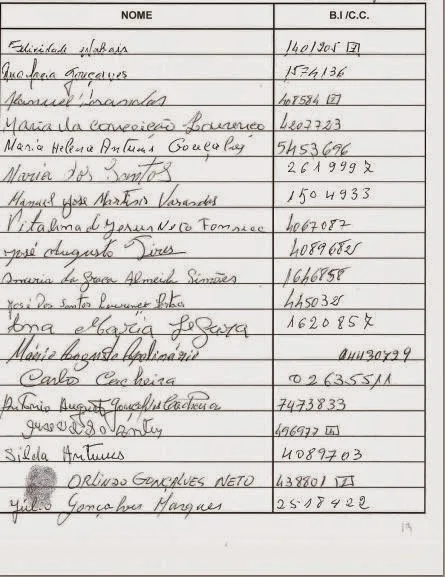 NOME B.I/C.C.
Felicidade 1401205
Gonçalves 1574136
Manuel 408584
Maria da conceição Lourenço 4207723
Maria Helena Antunes Gonçalves 5453696
Maria dos Santos 2619997
Manuel José Martins Varandas 1504933
Vitalina de Jesus Neto Fonseca 4067087
José Augusto Pires
Maria da Graça Almeida Simões 1646858
José Dos Santos Lourenço
Ana Maria 1620857
Mário Augusto Apolinário 04430729
Carlo Cacheira 02635511
António August Gonçalves 7473833
José 496977
Silda Antunes 4089703
ORLINDO GONÇALVES NETO 438801
Júlio Gonçalves Marques 2518422
13